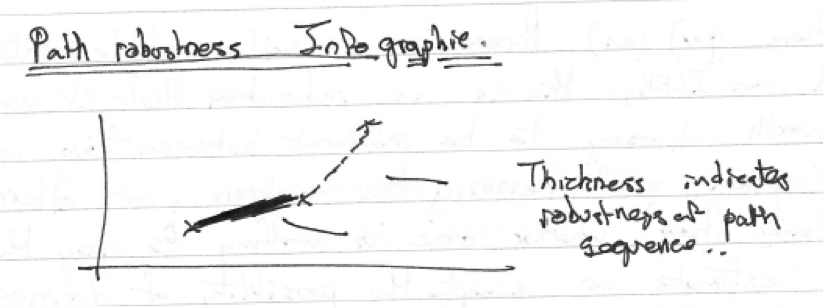 Path robustness Infographic.
Thickness indicates
robustness of path
sequence..